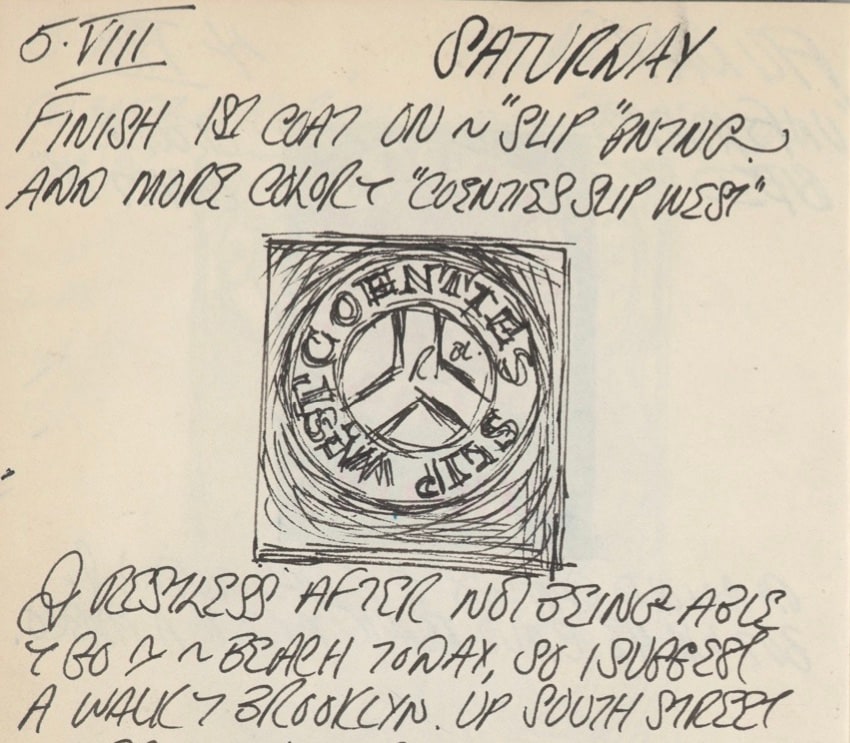 5·VIII SATURDAY
FINISH 1ST COAT ON ~ "SLIP" PNTNG.
ADD MORE COLOR γ "COENTIES SLIP WEST"
COENTIES SLIP WEST
RESTLESS AFTER NOT BEING ABLE
γ GO γ ~ BEACH TODAY, SO I SUGGEST
A WALK γ BROOKLYN. UP SOUTH STREET